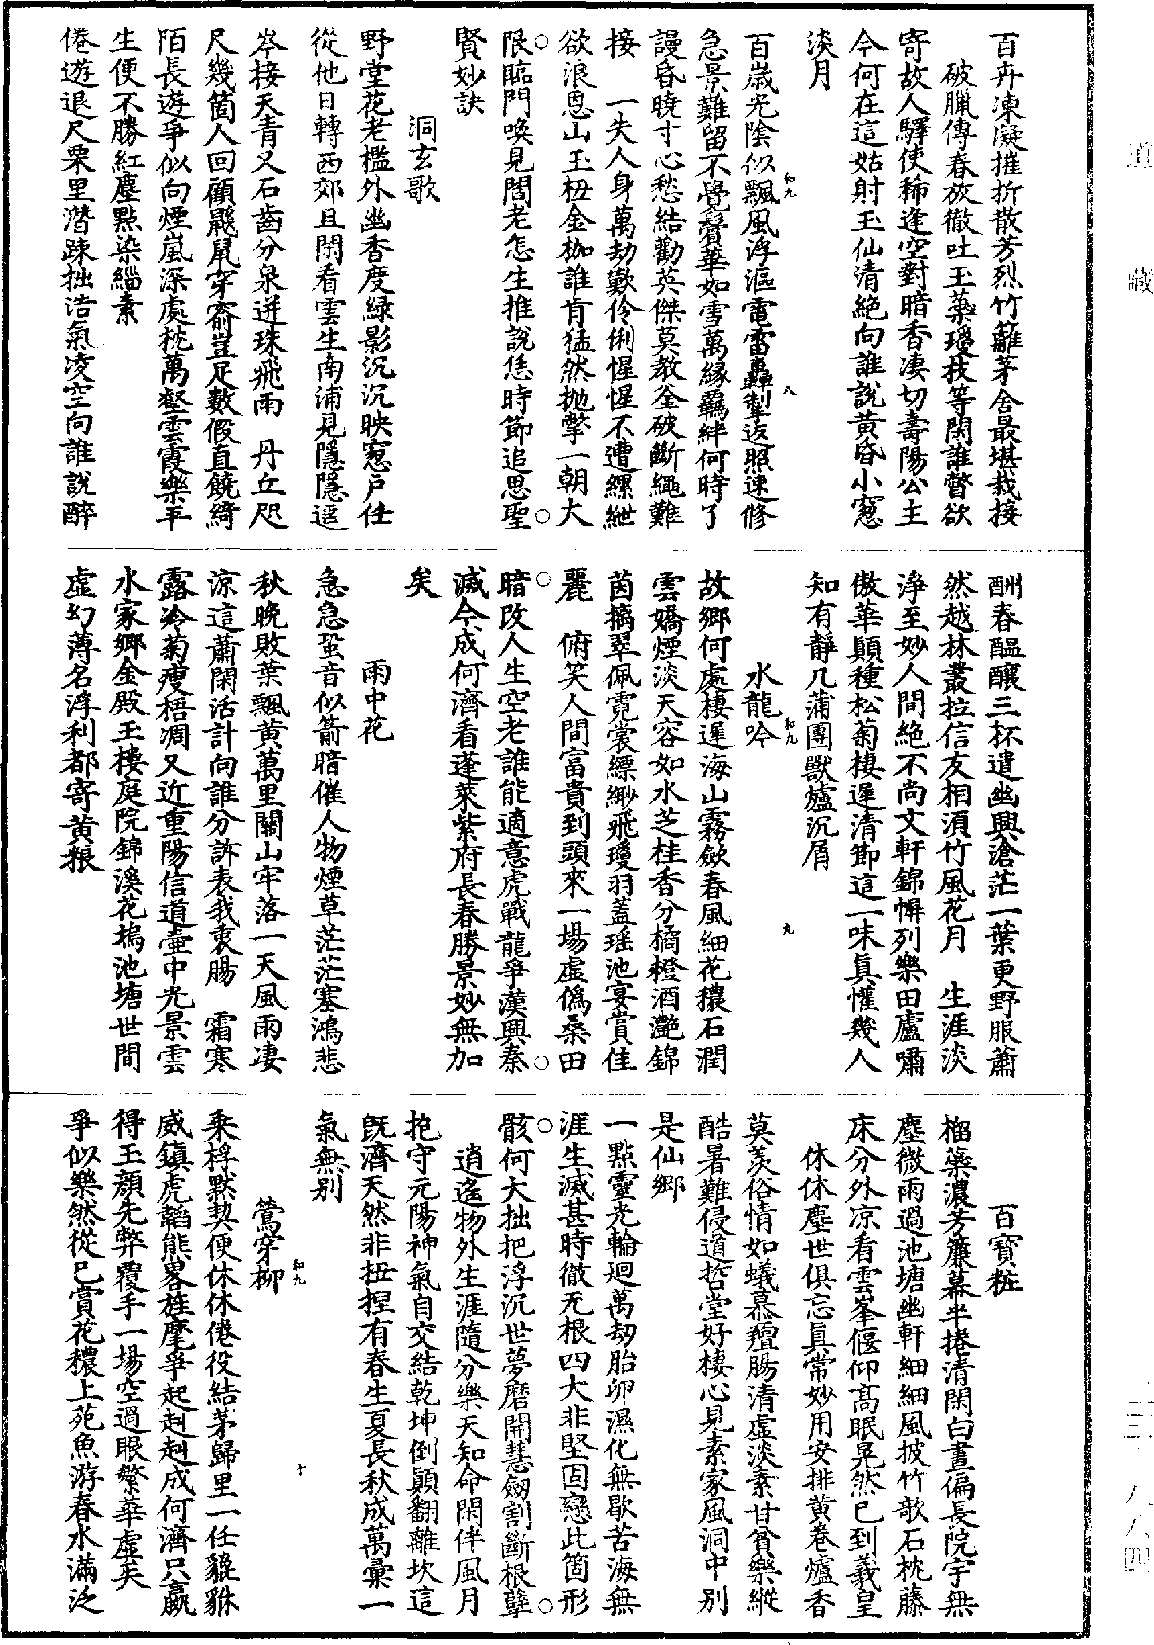 百卉凍凝摧折散芳烈竹籬茅舍最堪栽接
破臘傳春放徹吐玉蘂瓊枝等閑誰瞥欲
寄故人驛使稀逢空對暗香淒切壽陽公主
今何在這姑射玉仙清絕向誰說黃昏小窻
淡月
百歲光陰似飄風浮漚電雷轟掣返照速修
急景難留不覺鬢華如雪萬緣羈絆何時了
謾昏曉寸心愁結勸英傑莫教全破斷繩難
接　一失人身萬劫歎伶俐惺惺不遭縲絏
欲浪恩山玉杻金枷誰肯猛然拋擎一朝大
限臨門喚見閻老怎生推說恁時節追思聖
賢妙訣
洞玄歌
野堂花老檻外幽香度綠影沉沉映窻戶任
從他日轉西郊且閑看雲生南浦見隱隱遥
岑接天青又石齒分泉迸珠飛雨　丹丘咫
尺幾箇人回顧鼷鼠穿窬豈足數假直饒綺
陌長遊爭似向煙嵐深處枕萬壑雲霞樂平
生便不勝紅塵點染緇素
倦遊退尺栗里潛踈拙浩氣凌空向誰說醉
酬春醖釀三杯遣幽興滄茫一葉更野服蕭
然越林叢拉信友相湏竹風花月　生涯淡
淨至妙人間絕不尚文軒錦㡡列樂田廬嘯
傲華顛種松菊棲遲清節這一味真懽幾人
知有靜几蒲團獸爐沉屑
水龍吟
故鄉何處棲遲海山霧歛春風細花穠石潤
雲嬌煙淡天容如水芝桂香分橘橙酒灔錦
茵摛翠佩霓裳縹緲飛瓊羽蓋瑶池宴賞佳
麗　俯笑人間富貴到頭來一場虛僞桑田
暗改人生空老誰能適意虎戰龍爭漢興秦
滅今成何濟看蓬萊紫府長春勝景妙無加
矣
雨中花
急急蛩音似箭暗催人物煙草茫茫塞鴻悲
秋晚敗葉飄黃萬里關山牢落一天風雨淒
涼這蕭閑活計向誰分訴表我衷腸　霜寒
露冷菊瘦梧凋又近重陽信道壷中光景雲
水家鄉金殿玉樓庭院錦溪花塢池塘世間
虛幻薄名浮利都寄黃粮
百寶粧
榴蘂濃芳簾幕半捲清閑白晝偏長院宇無
塵微雨過池塘幽軒細細風披竹歌石枕藤
床分外凉看雲峯偃仰高眠晃然已到羲皇
休休塵世俱忘真常妙用安排黃卷爐香
莫羡俗情如蟻慕羶腸清虛淡素甘貧樂縱
酷暑難侵道哲堂好棲心見素家風洞中別
是仙鄉
一點靈光輪廻萬劫胎卵濕化無歇苦海無
涯生滅甚時徹无根四大非堅固戀此箇形
骸何大拙把浮沉世夢磨開慧劒割斷根孽
逍遙物外生涯隨分樂天知命閑伴風月
抱守元陽神氣自交結乾坤倒顛翻離坎這
旣濟天然非扭捏有春生夏長秋成萬彙一
氣無別
鶯穿柳
乘桴默契便休休倦役結茅歸里一任貔貅
威鎮虎韜熊畧旌麾爭起赳赳成何濟只嬴
得玉顏先弊覆手一場空過眼繁華虛矣
爭似樂然從己賞花穠上苑魚游春水滿泛
道藏